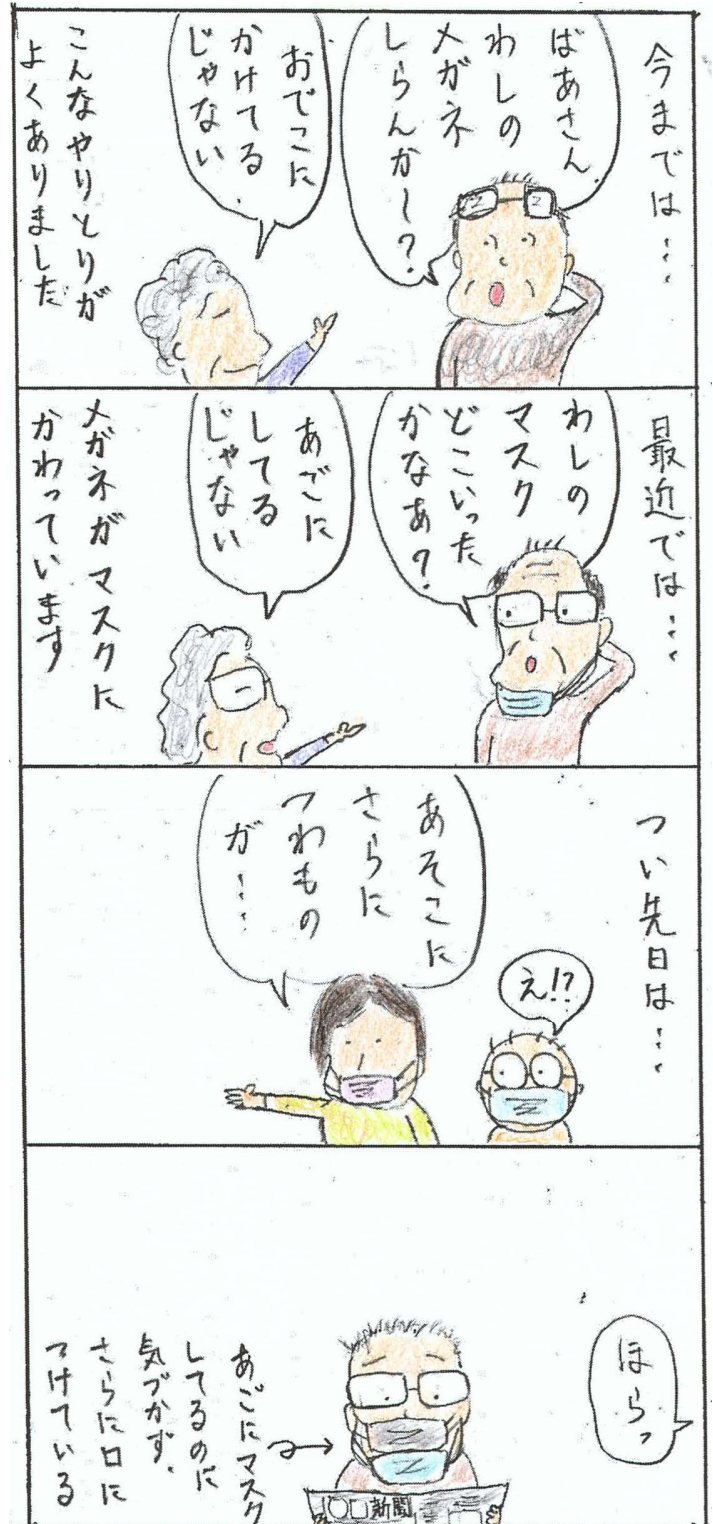 今までは…
ばあさん
わしの
メガネ
しらんかー?
おでこに
かけてる
じゃない
こんなやりとりが
よくありました
最近では…
わしの
マスク
どこいった
かなあ?
あごに
してる
じゃない
メガネがマスクに
かわっています
つい先日は…
え!?
あそこに
さらに
つわもの
が…
ほらっ
あごにマスク
してるのに
気づかず、
さらに口に
つけている
〇□新聞